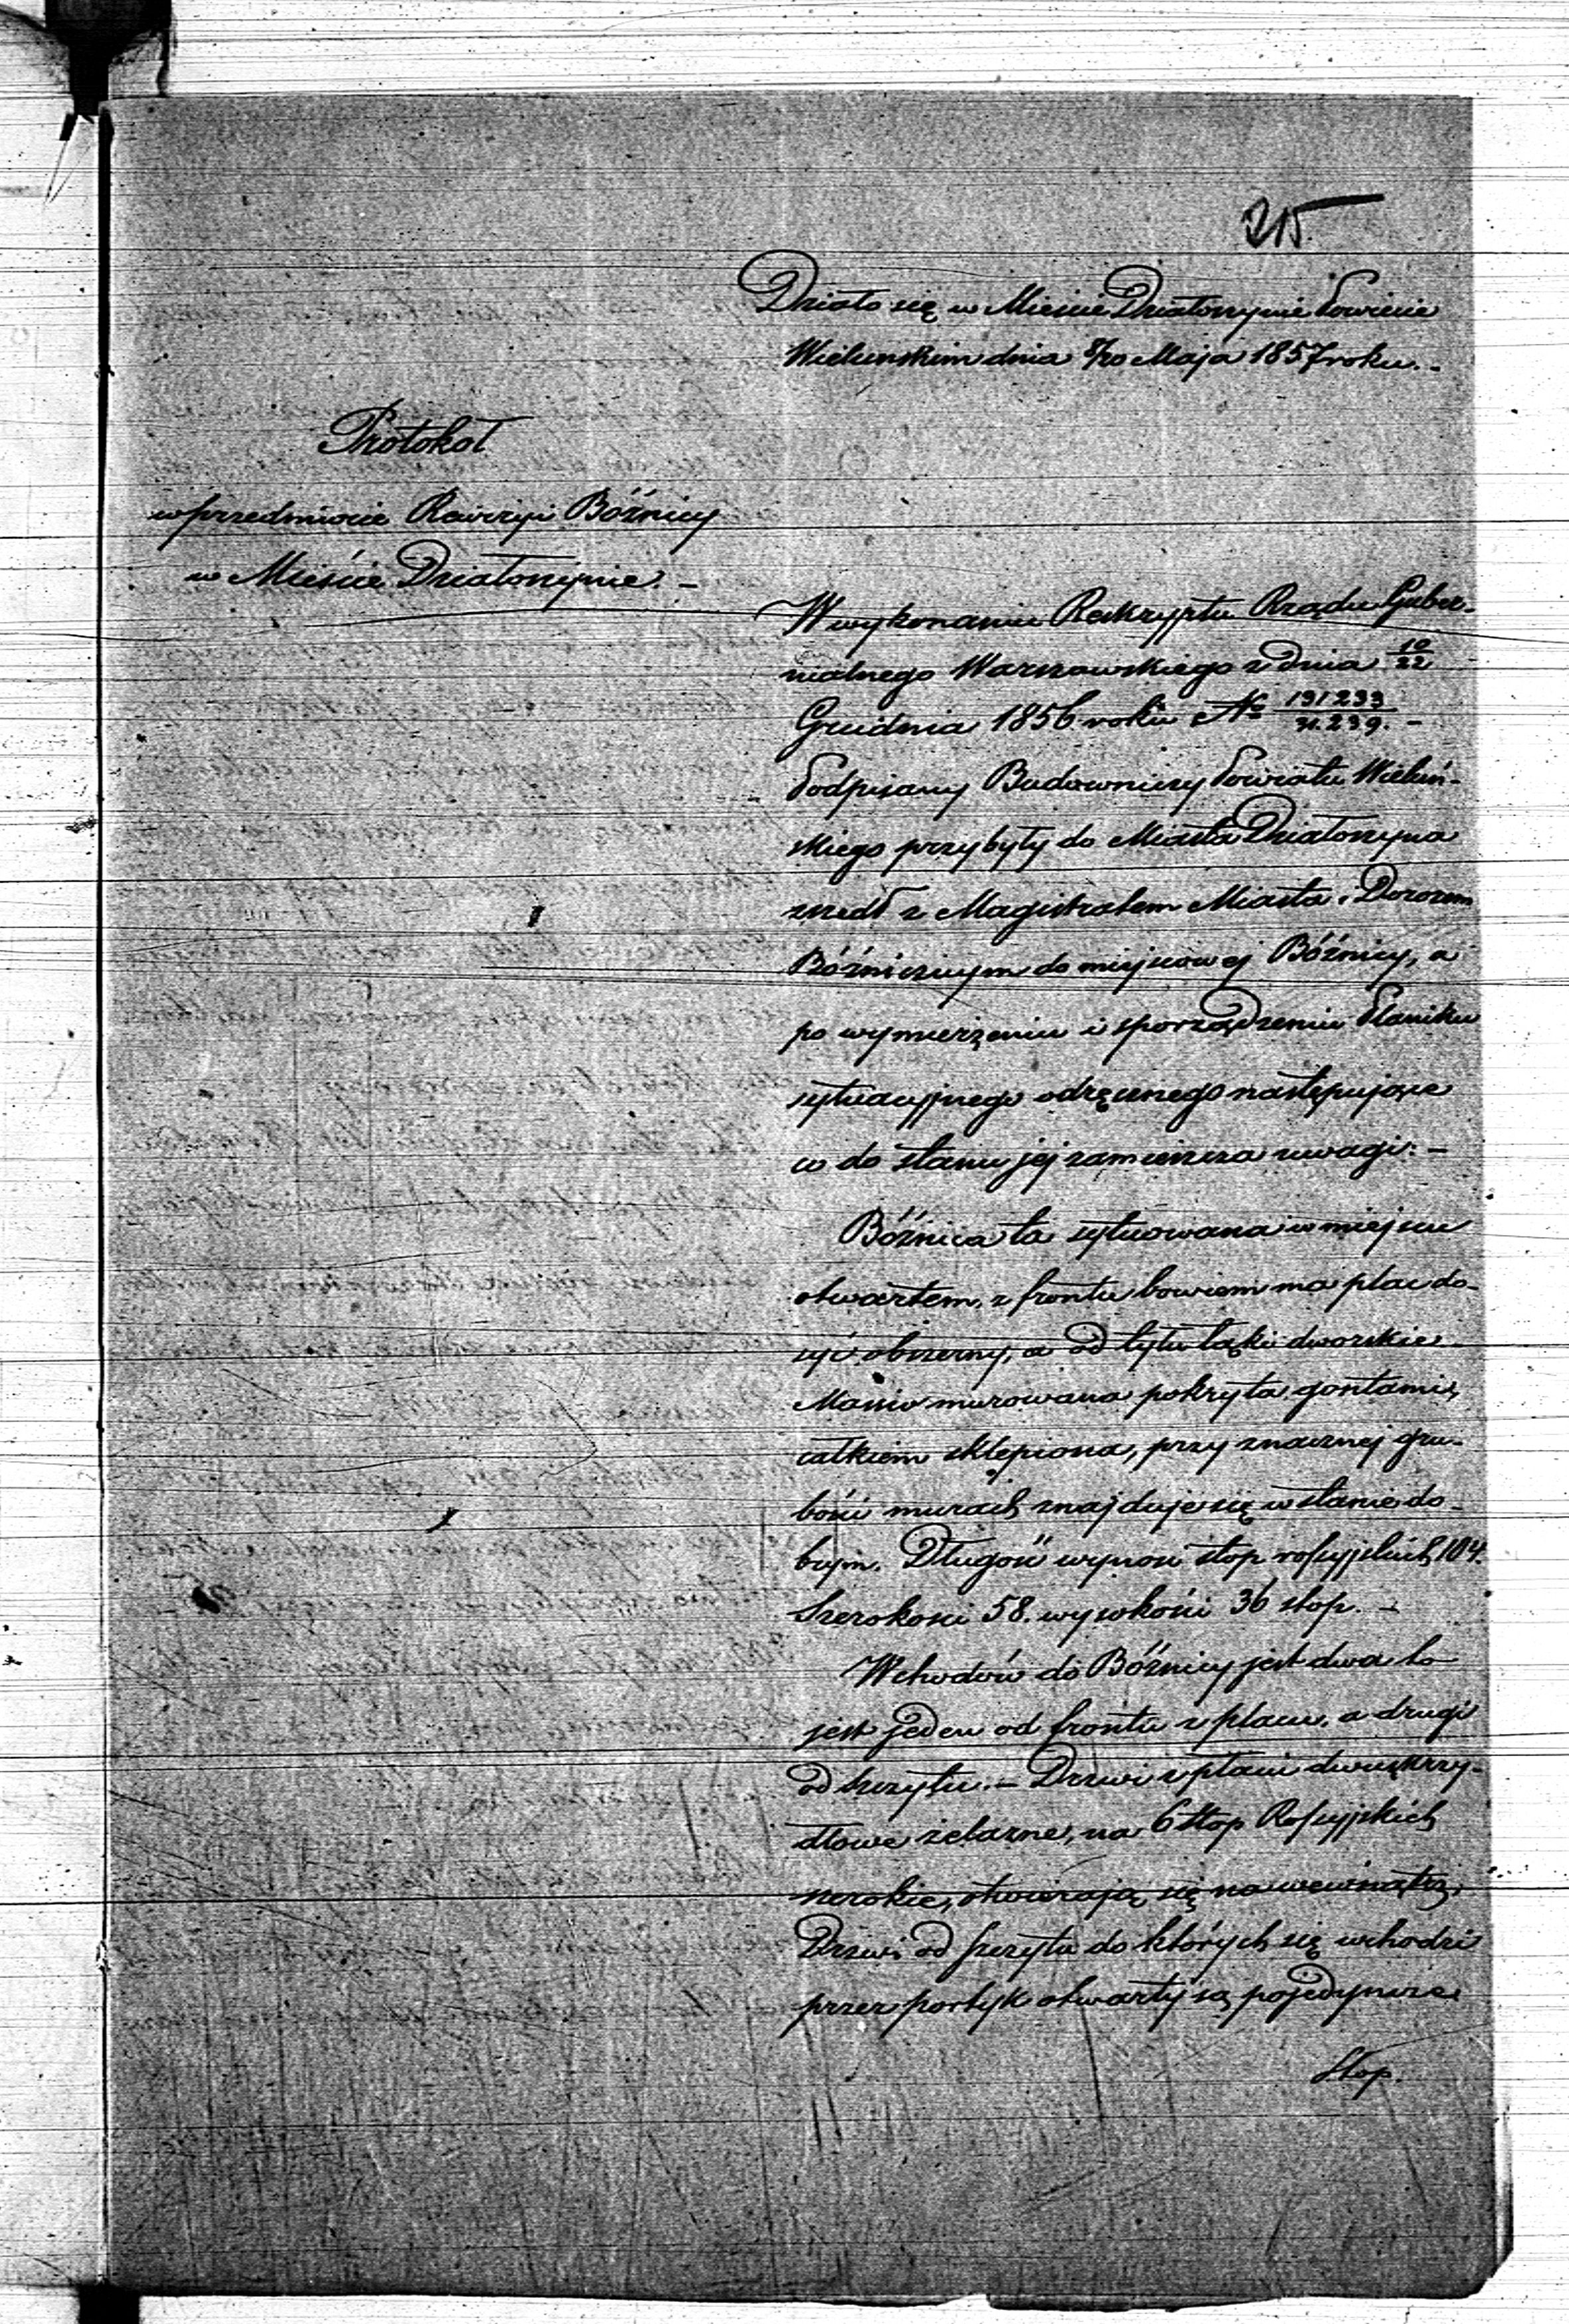 215.
Działo się w Mieście Działoszynie Powiecie
Wieluńskim dnia 8/20 Maja 1857 roku.-
Protokoł
w przedmiocie Rewizyi Bóźnicy
w Mieście Działoszynie. -
W wykonaniu Reskryptu Rządu Guber-
nialnego Warszawskiego z dnia 10/22
Grudnia 1856 roku № 191233/71.239. -
Podpisany Budowniczy Powiatu Wieluń-
skiego przybyły do Miasta Działoszyna
zszedł z Magistratem Miasta i Dozorem
Bóźniczym do miejscowej Bóźnicy, a
po wymierzeniu i sporządzeniu Planiku
sytuacyjnego odręcznego następujące
co do stanu jej zamieszcza uwagi: -
Bóźnica ta sytuowana w miejscu
otwartem, z frontu bowiem ma plac do-
syć obszerny, a od tyłu łąki dworskie.
Massiv murowana pokryta gontami,
całkiem sklepiona, przy znacznej gru-
bości murach znajduje się w stanie do-
brym. Długość wynosi stop rossyjskich 104.
Szerokości 58. wysokości 36 stop. -
Wchodów do Bóźnicy jest dwa to
jest jeden od frontu z placu, a drugi
od szczytu. - Drzwi z placu dwuskrzy-
dłowe żelazne, na 6 stop Rossyjskich
szerokie, otwierają się na wewnątrz,
Drzwi od szczytu do których się wchodzi
przez portyk otwarty są pojedyncze
stop.